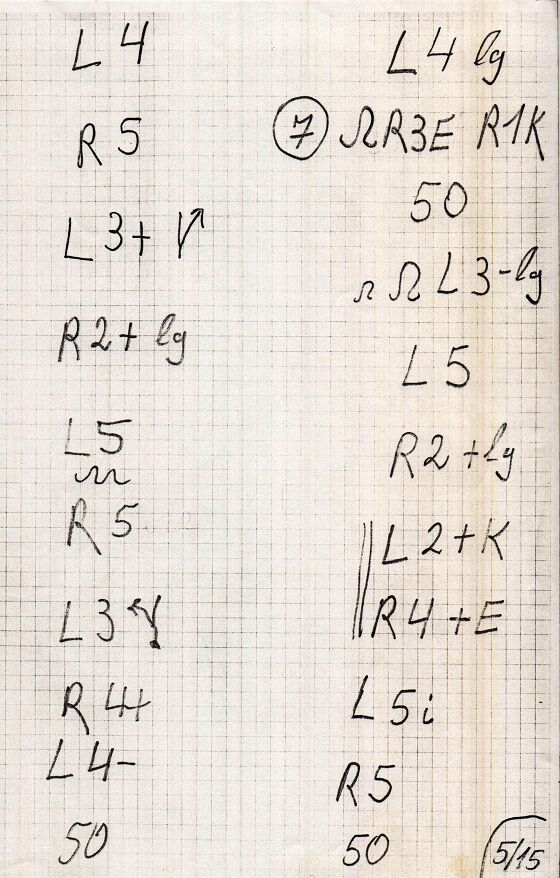 L 4
R 5
L 3+
R 2+ lg
L 5
R 5
L 3
R 4+
L 4-
50
L 4 lg
7 Ω R3E R1K
50
Ω Ω L 3-lg
L 5
R 2 +lg
L 2+K
R 4 +E
L 5i
R 5
50
5/15